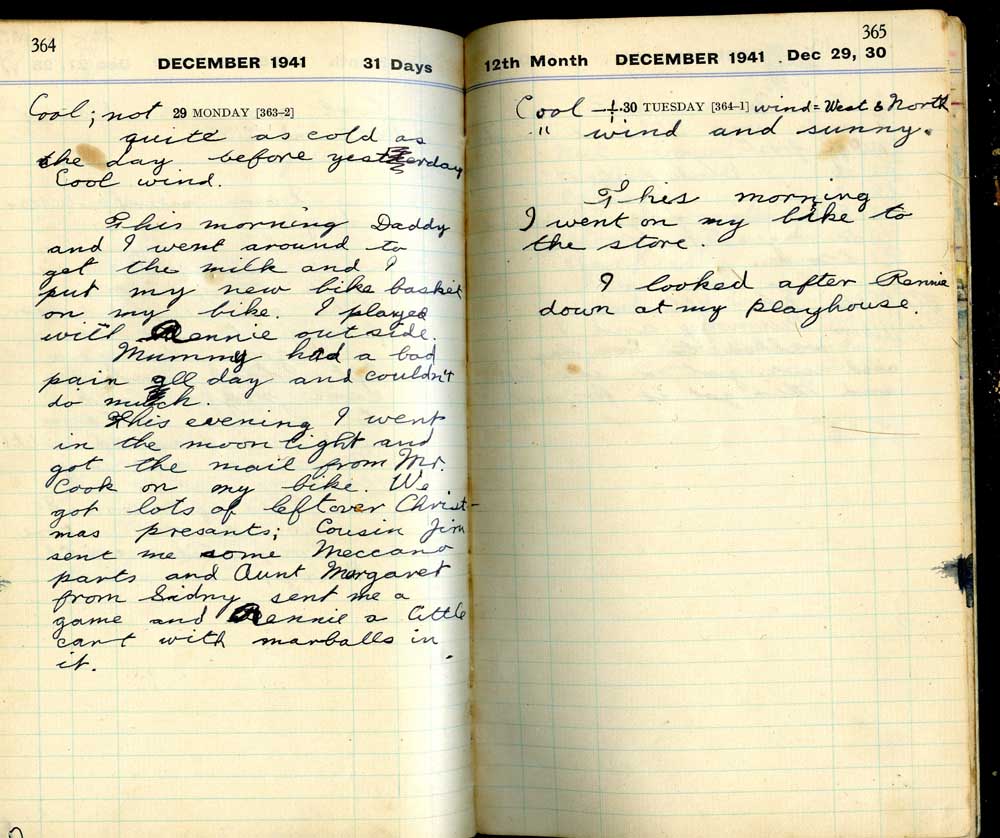 364
DECEMBER 1941 31 Days
Cool; not 29 MONDAY [363–2]
quite as cold as
the day before yesterday
Cool wind.
This morning Daddy
and I went around to
get the milk and I
put my new bike basket
on my bike. I played
with Rennie outside.
Mummy had a bad
pain all day and couldn't
do much.
This evening I went
in the moon light and
got the mail from Mr.
Cook on my bike. We
got lots of leftover Christ-
mas presants; Cousin Jim
sent me some Meccano
parts and Aunt Margaret
from Sidny sent me a
game and Rennie a little
cart with marballs in
it.
365
12th Month DECEMBER 1941 Dec 29, 30
Cool 30 TUESDAY [364–1] wind = West & North
" wind and sunny.
This morning
I went on my bike to
the store.
I looked after Rennie
down at my playhouse.